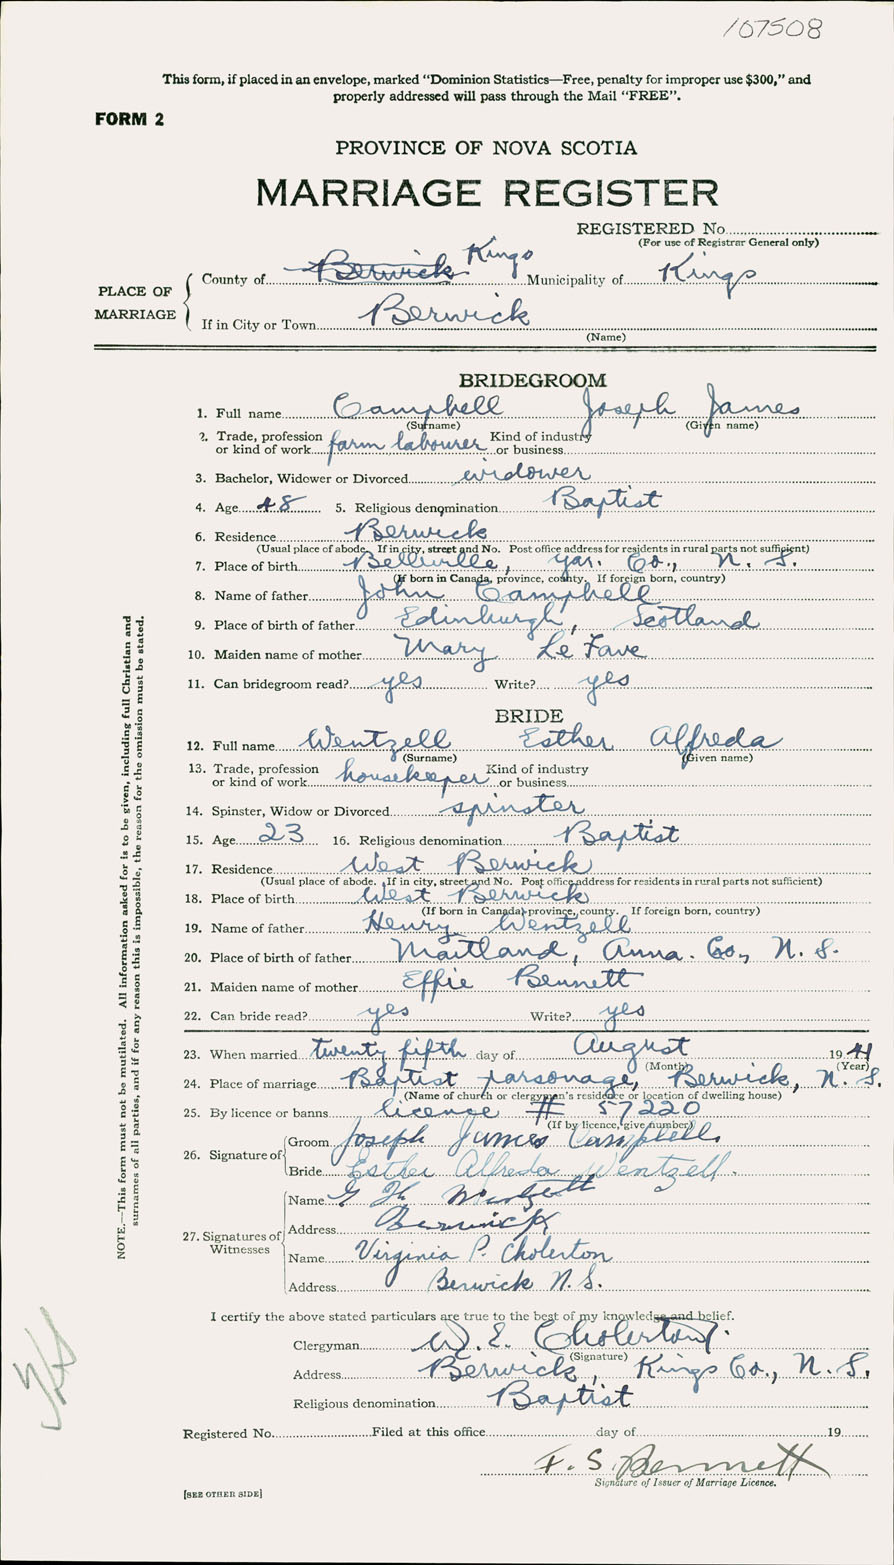 107508
This form, if placed in an envelope, marked "Dominion Statistics—Free, penalty for improper use $300," and
properly addressed will pass through the Mail "FREE".
FORM 2
PROVINCE OF NOVA SCOTIA
MARRIAGE REGISTER
REGISTERED No.
(For use of Registrar General only)
PLACE OF MARRIAGE
County of Berwick Kings Municipality of Kings
If in City or Town Berwick
(Name)
BRIDEGROOM
1. Full name Campbell Joseph James
(Surname) (Given name)
2. Trade, profession or kind of work farm labourer Kind of industry or business
3. Bachelor, Widower or Divorced widower
4. Age 48 5. Religious denomination Baptist
6. Residence Berwick
(Usual place of abode. If in city, street and No. Post office address for residents in rural parts not sufficient)
7. Place of birth Belliville, Yar. Co., N. S.
(If born in Canada, province, county. If foreign born, country)
8. Name of father John Campbell
9. Place of birth of father Edinburgh, Scotland
10. Maiden name of mother Mary Le Fave
11. Can bridegroom read? yes Write? yes
BRIDE
12. Full name Wentzell Esther Alfreda
(Surname) (Given name)
13. Trade, profession or kind of work housekeeper Kind of industry or business
14. Spinster, Widow or Divorced spinster
15. Age 23 16. Religious denomination Baptist
17. Residence West Berwick
(Usual place of abode. If in city, street and No. Post office address for residents in rural parts not sufficient)
18. Place of birth West Berwick
(If born in Canada, province, county. If foreign born, country)
19. Name of father Henry Wentzell
20. Place of birth of father Maitland, Anna. Co., N. S.
21. Maiden name of mother Effie Bennett
22. Can bride read? yes Write? yes
23. When married twenty fifth day of August 1941
(Month) (Year)
24. Place of marriage Baptist parsonage, Berwick, N. S.
(Name of church or clergymen's residence or location of dwelling house)
25. By licence or banns licence # 57220
(If by licence, give number)
26. Signature of
Groom Joseph James Campbell
Bride Esther Alfreda Wentzell.
27. Signatures of Witnesses
Name G H
Address Berwick
Name Virginia P. Cholerton
Address Berwick N. S.
I certify the above stated particulars are true to the best of my knowledge and belief.
Clergyman W. E. Cholerton.
(Signature)
Address Berwick, Kings Co., N. S.
Religious denomination Baptist
Registered No. Filed at this office day of 19
F. S. Bennett
Signature of Issuer of Marriage Licence.
[SEE OTHER SIDE]
NOTE.—This form must not be mutilated. All information asked for is to be given, including full Christian and
surnames of all parties, and if for any reason this is impossible, the reason for the omission must be stated.